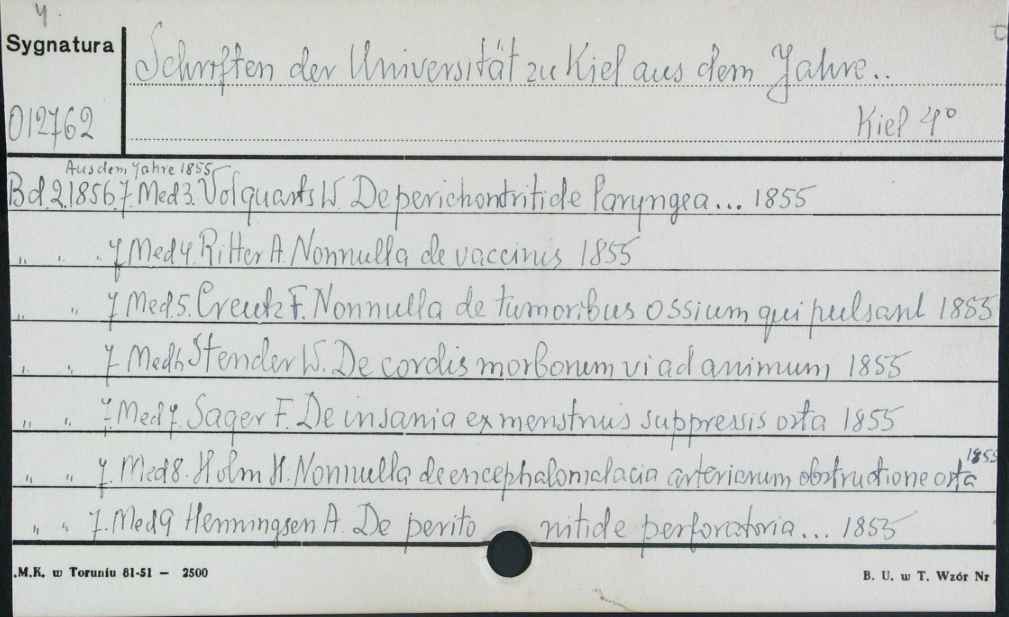 4.
Sygnatura
Schriften der Universität zu Kiel aus dem Jahre..
012762
Kiel 4°
Aus dem Jahre 1855
Bd. 2. 1856. 7. Med 3. Volquarts W. De perichontritide laryngea... 1855
" " 7 Med 4. Ritter A. Nonnulla de vaccinis 1855
" " 7 Med. 5. Creutz F. Nonnulla de tumoribus ossium qui pulsant 1855
" " 7. Med 6 Stender W. De cordis morborum vi ad animum 1855
" " 7. Med 7. Sager F. De insania ex menstruis suppressis orta 1855
" " 7. Med 8. Holm H. Nonnulla de encephalomalacia arteriarum obstructione orta 1855
" " 7. Med 9 Henningsen A. De peritonitide perforatoria... 1855
.M.K. w Toruniu 81-51 — 2500
B. U. w T. Wzór Nr